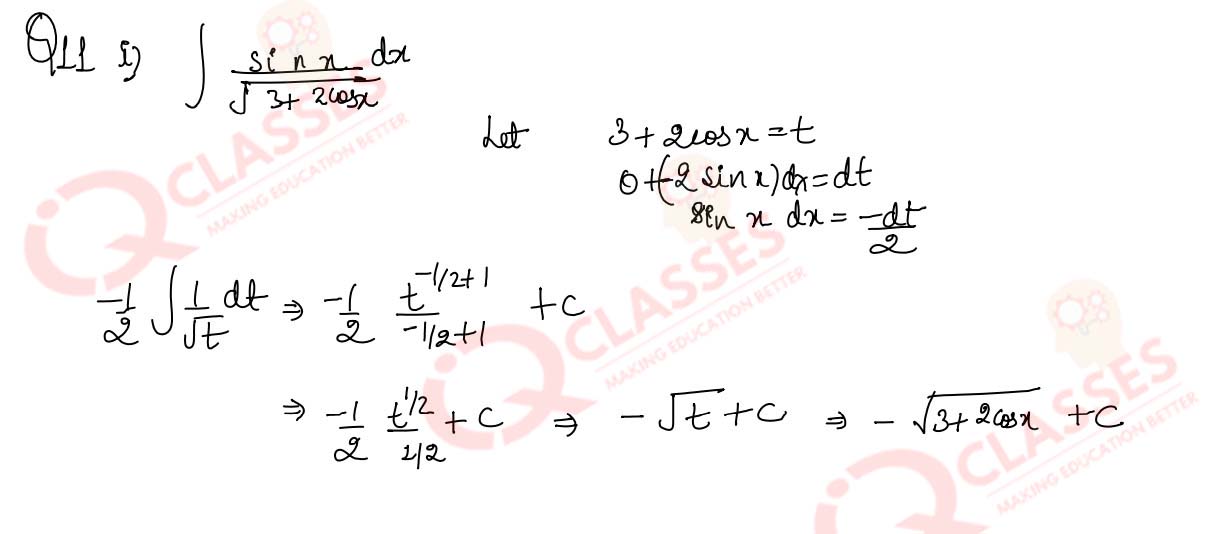 Q11 i) ∫ sin x dx / √(3+ 2cosx)
Let 3+2cosx=t
0+(-2 sin x)dx=dt
sin x dx = -dt/2
-1/2 ∫ 1/√t dt ⇒ -1/2 t^(-1/2+1)/(-1/2+1) +c
⇒ -1/2 t^(1/2)/(1/2) + c ⇒ -√t + c ⇒ -√(3+2cosx) +c
iQ CLASSES
MAKING EDUCATION BETTER
iQ CLASSES
MAKING EDUCATION BETTER
iQ CLASSES
MAKING EDUCATION BETTER